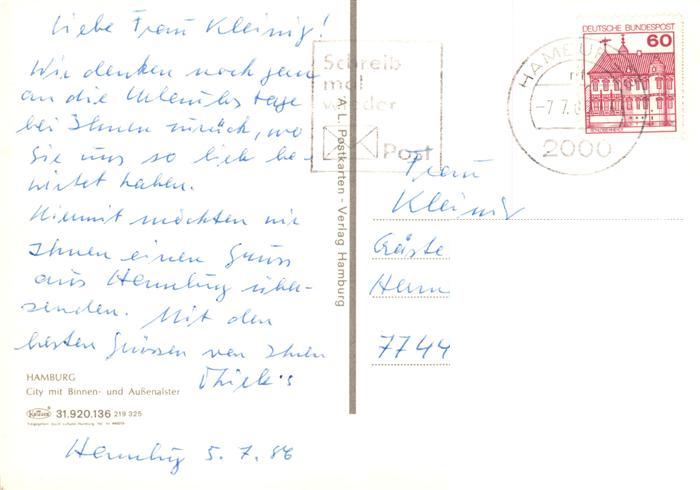 Liebe Frau Kleinig!
Wir denken noch gern
an die Urlaubstage
bei Ihnen zurück, wo
Sie uns so lieb be-
wirtet haben.
Hiermit möchten wir
Ihnen einen Gruss
aus Hamburg über-
senden. Mit den
besten Grüssen von Ihren
Thiele's
HAMBURG
City mit Binnen- und Außenalster
Krüger 31.920.136 219 325
Hamburg 5.7.86
A. L. Postkarten - Verlag Hamburg
Schreib
mal
wieder
Post
HAMBURG
-7.7.8
2000
DEUTSCHE BUNDESPOST
60
Frau
Kleinig
Gäste
Haus
7744